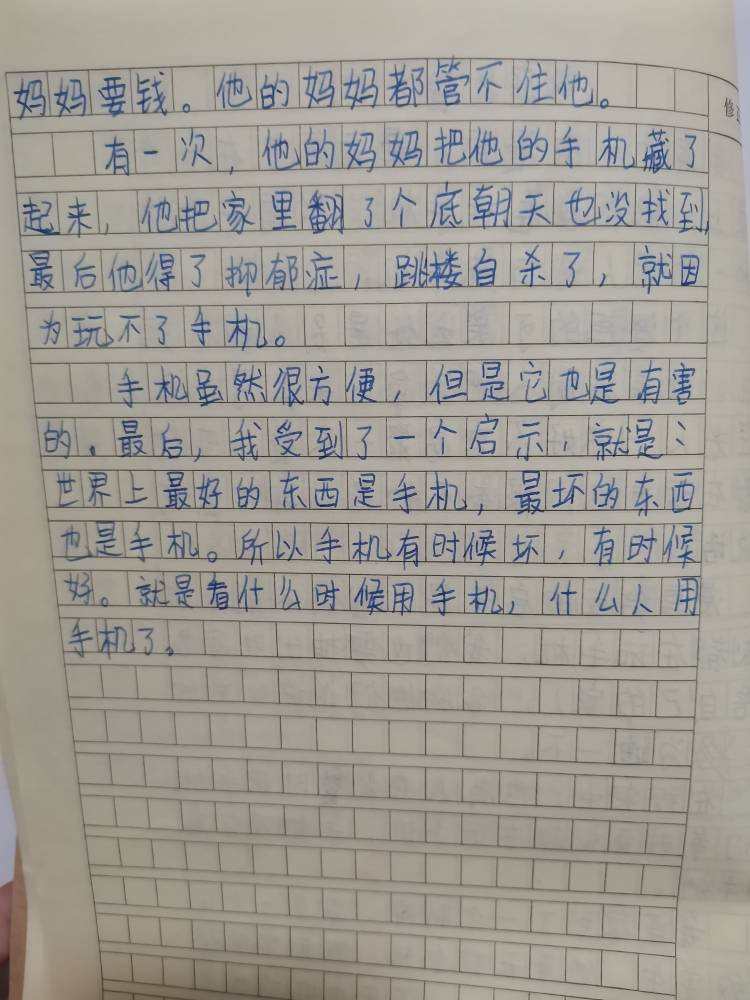 妈妈要钱。他的妈妈都管不住他。
有一次，他的妈妈把他的手机藏了
起来，他把家里翻了个底朝天也没找到，
最后他得了抑郁症，跳楼自杀了，就因
为玩不了手机。
手机虽然很方便，但是它也是有害
的。最后，我受到了一个启示，就是：
世界上最好的东西是手机，最坏的东西
也是手机。所以手机有时候坏，有时候
好。就是看什么时候用手机，什么人用
手机了。